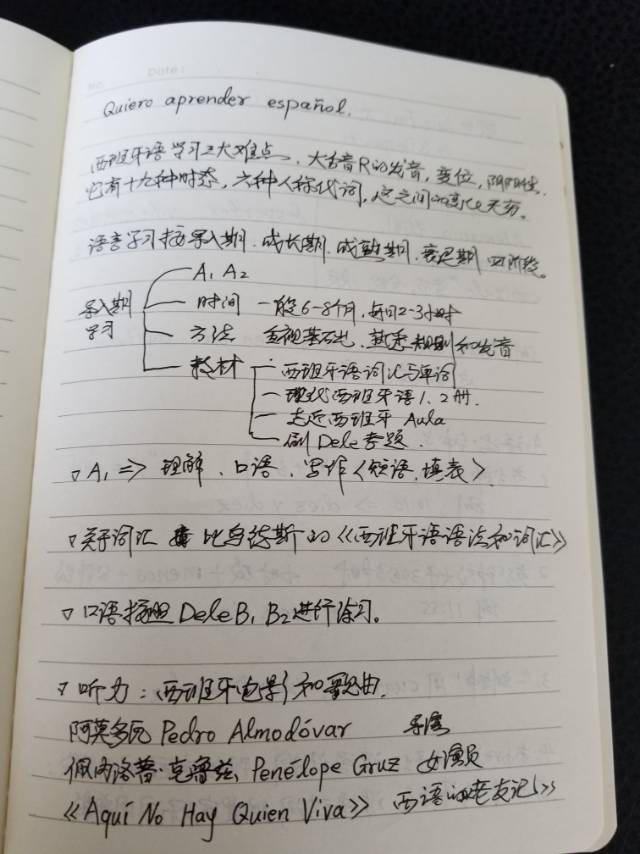 No. Date:
Quiero aprender español.
西班牙语学习三大难点、大舌音R的发音,变位,阴阳性.
它有十九种时态,六种人称代词,这之间的变化无穷。
语言学习按导入期、成长期、成熟期、衰退期 四阶段。
导入期学习
A1 A2
时间 一般6-8个月,每日2-3小时
方法 重视基础,熟悉规则和发音
教材
西班牙语词汇与单词
现代西班牙语1、2册.
走近西班牙 Aula
刷Dele专题.
▽ A1 => 理解、口语、写作<短语、填表>.
▽关于词汇 比乌特斯的《西班牙语语法和词汇》
▽口语按照 Dele B1 B2进行练习。
▽听力:西班牙电影和歌曲.
阿莫多瓦 Pedro Almodóvar 导演
佩内洛普·克鲁兹 Penélope Gruz 女演员
《Aquí No Hay Quien Viva》 西语的《老友记》